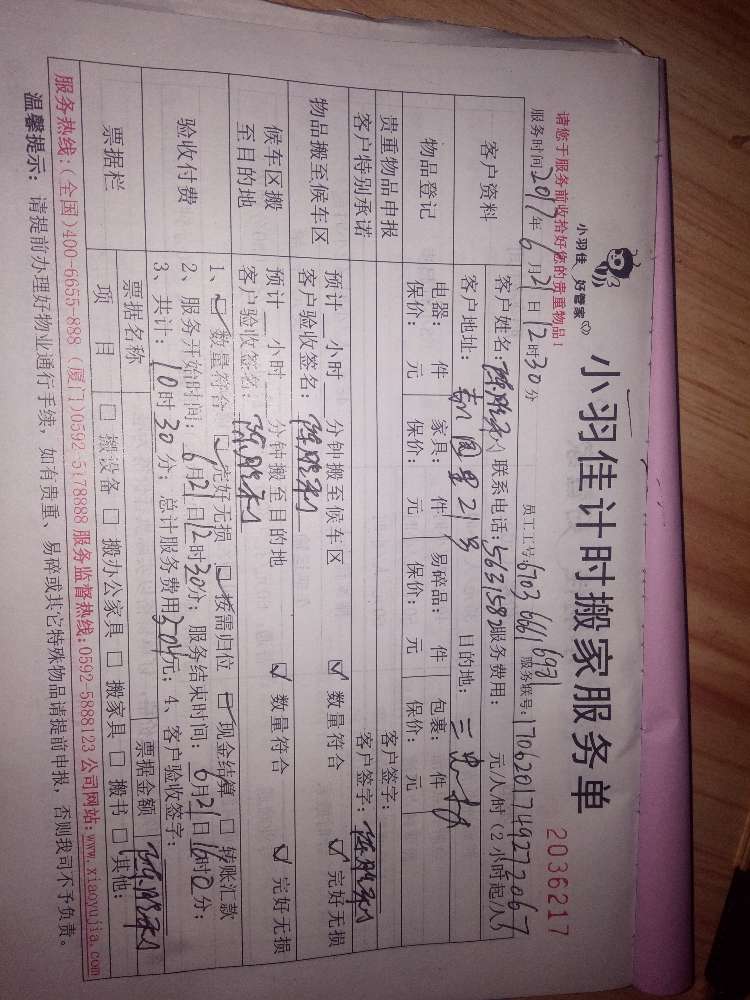 小羽佳 好管家
小羽佳计时搬家服务单
2036217
请您于服务前收拾好您的贵重物品!
服务时间2017年6月21日12时30分 员工工号:6703 6661 6981 服务联号:1706201749272067
客户资料 客户姓名: 联系电话:5631582 服务费用: 元/人时(2小时起/人)
客户地址: 21号 目的地:
物品登记 电器: 件 家具: 件 易碎品: 件 包裹: 件
保价: 元 保价: 元 保价: 元 保价: 元
贵重物品申报 客户签字:
客户特别承诺 客户签字:
物品搬至候车区 预计 小时 分钟搬至候车区 ☑ 数量符合 ☑ 完好无损
客户验收签名:
候车区搬至目的地 预计 小时 分钟搬至目的地 ☑ 数量符合 ☑ 完好无损
客户验收签名:
验收付费 1、☑ 数量符合 ☑ 完好无损 ☑ 按需归位 ☑ 现金结算 □ 转账汇款
2、服务开始时间: 6月21日12时30分; 服务结束时间: 6月21日16时0分;
3、共计: 10时30分; 总计服务费用304元; 4、客户验收签字:
票据栏 票据名称 票据金额
项目 □ 搬设备 □ 搬办公家具 □ 搬家具 □ 搬书 □ 其他:
服务热线:(全国)400-6655-888 (厦门)0592-5178888 服务监督热线:0592-5888123 公司网站:www.xiaoyujia.com
温馨提示: 请提前办理好物业通行手续,如有贵重、易碎或其它特殊物品请提前申报,否则我司不予负责。